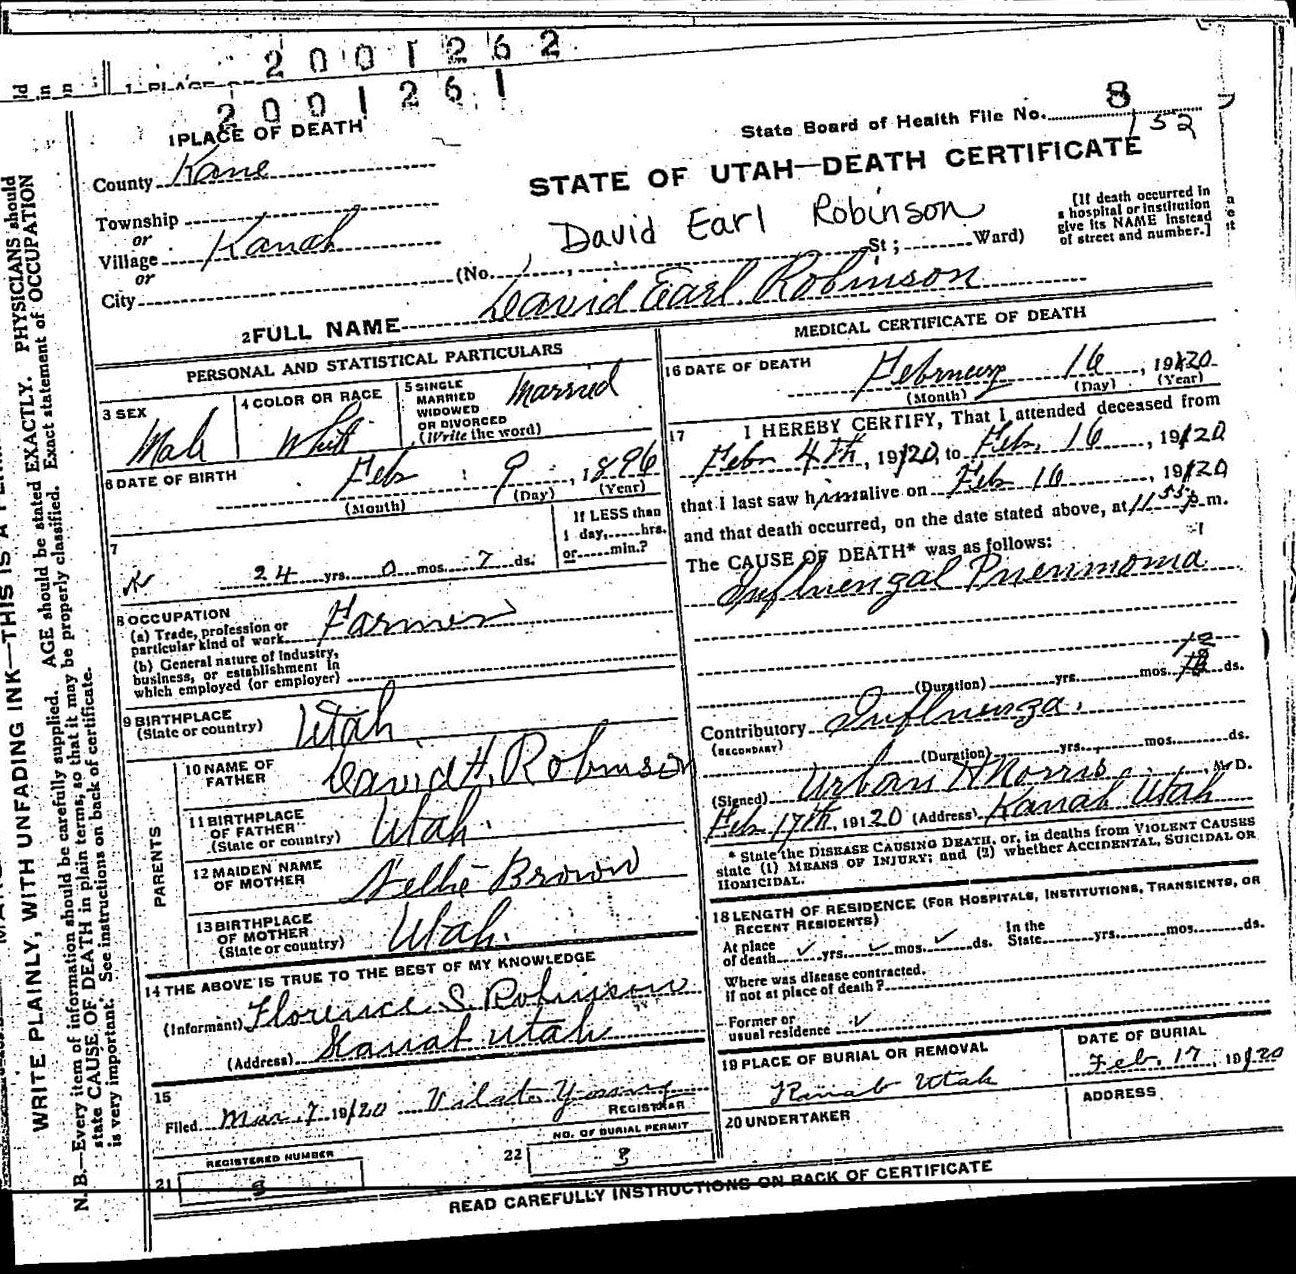 2001262
1 PLACE OF
2001261
1 PLACE OF DEATH
State Board of Health File No. 8
152
County Kane
STATE OF UTAH—DEATH CERTIFICATE
Township
or
Village Kanab
or
City
David Earl Robinson
(No. St; Ward)
[If death occurred in
a hospital or institution
give its NAME instead
of street and number.]
2 FULL NAME David Earl Robinson
PERSONAL AND STATISTICAL PARTICULARS
3 SEX
Male
4 COLOR OR RACE
White
5 SINGLE
MARRIED
WIDOWED
OR DIVORCED
(Write the word)
Married
6 DATE OF BIRTH
Feb 9, 1896
(Month) (Day) (Year)
7
24 yrs. 0 mos. 7 ds.
If LESS than
1 day, hrs.
or min.?
8 OCCUPATION
(a) Trade, profession or
particular kind of work Farmer
(b) General nature of Industry,
business, or establishment in
which employed (or employer)
9 BIRTHPLACE
(State or country) Utah
PARENTS
10 NAME OF
FATHER David H. Robinson
11 BIRTHPLACE
OF FATHER
(State or country) Utah.
12 MAIDEN NAME
OF MOTHER Nellie Brown
13 BIRTHPLACE
OF MOTHER
(State or country) Utah.
14 THE ABOVE IS TRUE TO THE BEST OF MY KNOWLEDGE
(Informant) Florence S. Robinson
(Address) Kanab Utah
15
Filed Mar. 7 1920 Vilate Young
REGISTRAR
NO. OF BURIAL PERMIT
22 3
REGISTERED NUMBER
21
MEDICAL CERTIFICATE OF DEATH
16 DATE OF DEATH
February 16, 1920
(Month) (Day) (Year)
17 I HEREBY CERTIFY, That I attended deceased from
Feb 4th, 1920, to Feb. 16, 1920
that I last saw him alive on Feb 16, 1920
and that death occurred, on the date stated above, at 11 55 p.m.
The CAUSE OF DEATH* was as follows:
Influenzal Pneumonia
12
(Duration) yrs. mos. ds.
Contributory Influenza.
(SECONDARY)
(Duration) yrs. mos. ds.
(Signed) Urban H Morris, M.D.
Feb 17th, 1920 (Address) Kanab Utah
* State the DISEASE CAUSING DEATH, or, in deaths from VIOLENT CAUSES
state (1) MEANS OF INJURY; and (2) whether ACCIDENTAL, SUICIDAL OR
HOMICIDAL.
18 LENGTH OF RESIDENCE (FOR HOSPITALS, INSTITUTIONS, TRANSIENTS, OR
RECENT RESIDENTS)
At place
of death ✓ yrs. ✓ mos. ✓ ds.
In the
State yrs. mos. ds.
Where was disease contracted.
if not at place of death?
Former or
usual residence ✓
19 PLACE OF BURIAL OR REMOVAL
Kanab Utah
DATE OF BURIAL
Feb. 17, 1920
20 UNDERTAKER
ADDRESS
READ CAREFULLY INSTRUCTIONS ON BACK OF CERTIFICATE
WRITE PLAINLY, WITH UNFADING INK—THIS IS A
N. B.—Every item of information should be carefully supplied. AGE should be stated EXACTLY. PHYSICIANS should
state CAUSE OF DEATH in plain terms, so that it may be properly classified. Exact statement of OCCUPATION
is very important. See instructions on back of certificate.